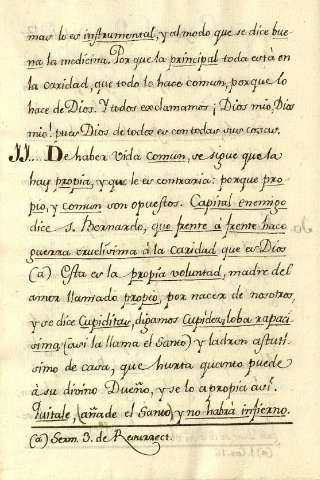 mas lo es instrumental, y al modo que se dice bue
na la medicina. Porque la principal toda está en
la caridad, que todo lo hace comun, porque lo
hace de Dios. Y todos exclamamos ¡Dios mio, Dios
mio! pues Dios de todos es con todas sus cosas.
11.... De haber vida comun, se sigue que la
hay propia, y que le es contraria: porque pro
pio, y comun son opuestos. Capital enemigo
dice S. Bernardo, que frente á frente hace
guerra cruelísima á la caridad que es Dios
(a) Esta es la propia voluntad, madre del
amor llamado propio, por nacer de nosotros,
y se dice Cupiditas, digamos Cupidez, loba rapaci
sima, (asi la llama el Santo) y ladron astuti
simo de casa, que hurta quanto puede
á su divino Dueño, y se lo apropia así.
Quitale, (añade el Santo, y no habrá infierno.
(a) Serm. 3. de Resurrect.